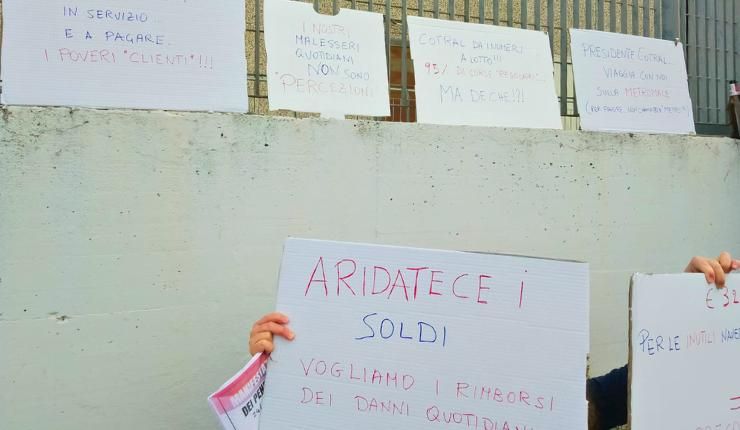 IN SERVIZIO...
E A PAGARE.
I POVERI "CLIENTI"!!!
I NOSTRI
MALESSERI
QUOTIDIANI
NON SONO
"PERCEZIONI"
COTRAL DA NUMERI
A LOTTO!!!
95% DI CORSE "REGOLARI"...
MA DE CHE!?!
PRESIDENTE COTRAL...
VIAGGIA CON NOI
SULLA METROMALE
ARIDATECE I
SOLDI
VOGLIAMO I RIMBORSI
DEI DANNI QUOTIDIANI
MANIFESTA
DEI PEN
€ 32
PER LE INUTILI NAVE